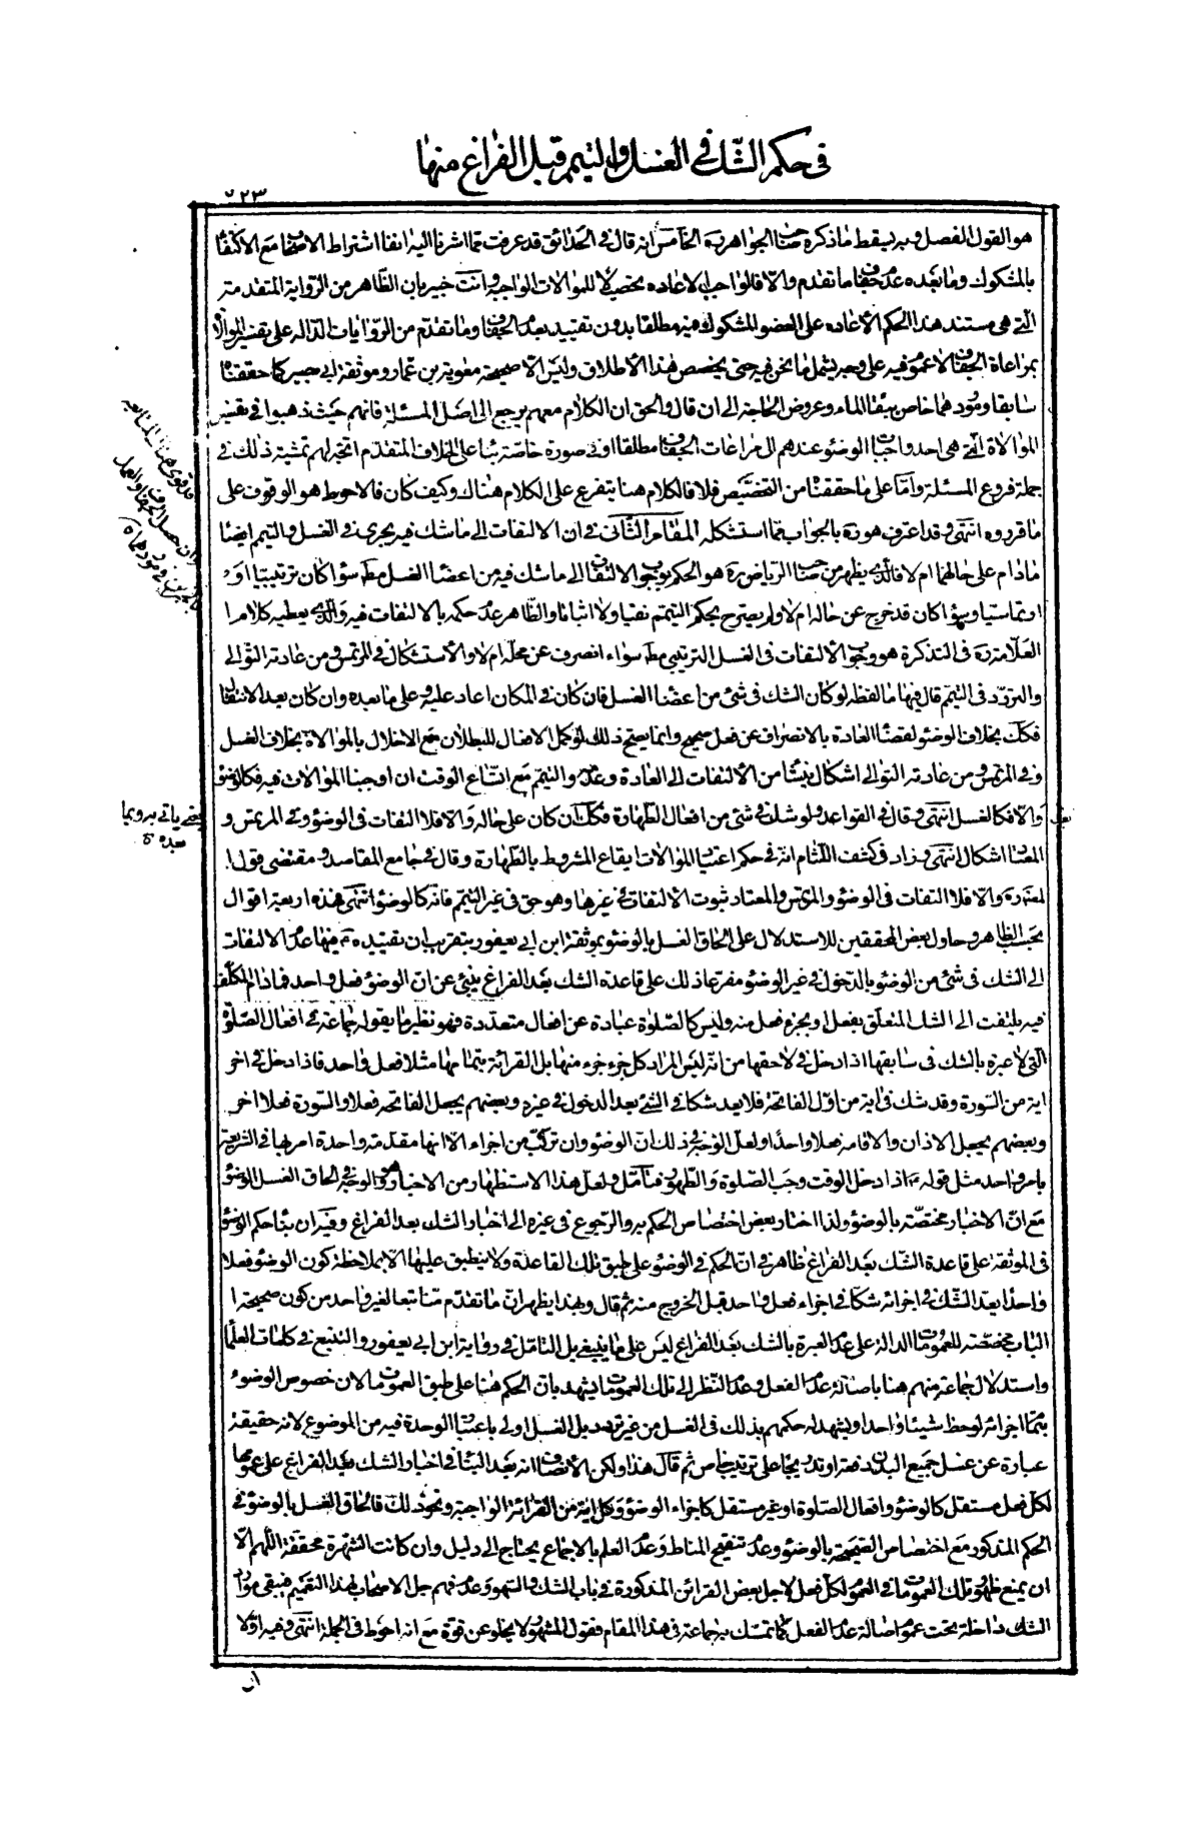 في حكم الشك في الغسل والتيمم قبل الفراغ منها
هو القول الفصل وبه يسقط ما ذكره صاحب الجواهر ره الخامس انه قال في الحدائق قد عرفت مما اشرنا اليه انفا اشتراط الاصحاب مع الاكتفاء
بالمشكوك وما بعده عدم جفاف ما تقدم والا قالوا يجب الاعاده تحصيلا للموالات الواجبة وانت خبير بان الظاهر من الرواية المتقدمة
التي هي مستند هذا الحكم الاعاده على العضو المشكوك فيه مطلقا بدون تقييد بعدم الجفاف وما تقدم من الروايات الدالة على تفسير الموالاة
بمراعاة الجفاف لا عموم فيه على وجه يشمل ما نحن فيه حتى يخصص هذا الاطلاق وليس الا صحيحة معوية بن عمار وموثقة ابي بصير كما حققناه
سابقا وموردهما خاص بنفاد الماء وعروض الحاجة الى ان قال والحق ان الكلام معهم يرجع الى اصل المسئلة فانهم حيث ذهبوا في تفسير
الموالاة التي هي احد واجبات الوضوء عندهم الى مراعات الجفاف مطلقا او في صورة خاصة بناء على الخلاف المتقدم اتجه لهم تمشية ذلك في
جملة فروع المسئلة واما على ما حققناه من التخصيص فلا فالكلام هنا يتفرع على الكلام هناك وكيف كان فالاحوط هو الوقوف على
ما قرروه انتهى وقد اعترف هو ره بالجواب عما استشكله المقام الثاني في ان الالتفات الى ما شك فيه يجري في الغسل والتيمم ايضا
ما دام على حالهما ام لا فالذي يظهر من صاحب الرياض ره هو الحكم بوجوب الالتفات الى ما شك فيه من اعضاء الغسل مط سواء كان ترتيبيا او
ارتماسيا وسواء كان قد خرج عن حاله ام لا ولم يصرح بحكم التيمم نفيا ولا اثباتا والظاهر عدم حكمه بالالتفات فيه والذي يعطيه كلام
العلامة ره في التذكرة هو وجوب الالتفات في الغسل الترتيبي مط سواء انصرف عن محله ام لا والاستشكال في المرتمس ومن عادته التوالي
والتردد في التيمم قال فيها ما لفظه لو كان الشك في شئ من اعضاء الغسل فان كان في المكان اعاد عليه وعلى ما بعده وان كان بعد الانتقال
فكك بخلاف الوضوء لقضاء العادة بالانصراف عن فعل صحيح وانما يصح ذلك لو كمل الافعال للبطلان مع الاخلال بالموالاة بخلاف الغسل
وفي المرتمس ومن عادته التوالي اشكال ينشأ من الالتفات الى العادة وعدمه والتيمم مع اتساع الوقت ان اوجبنا الموالات فيه فكالوضوء
والا فكالغسل انتهى وقال في القواعد ولو شك في شئ من افعال الطهارة فكك ان كان على حاله والا فلا التفات في الوضوء وفي المرتمس و
المعتاد اشكال انتهى وزاد في كشف اللثام انه في حكم اعتياد الموالات ايقاع المشروط بالطهارة وقال في جامع المقاصد ومقتضى قول
المصنف ره والا فلا التفات في الوضوء والمرتمس والمعتاد ثبوت الالتفات في غيرها وهو حق في غير التيمم فانه كالوضوء انتهى هذه اربعة اقوال
بحسب الظاهر وحاول بعض المحققين للاستدلال على الحاق الغسل بالوضوء بموثقة ابن ابي يعفور بتقريب ان تقييده ع فيها عدم الالتفات
الى الشك في شئ من الوضوء بالدخول في غير الوضوء مفرعا ذلك على قاعدة الشك بعد الفراغ ينبئ عن ان الوضوء فعل واحد فما دام المكلف
فيه يلتفت الى الشك المتعلق بفعل او بجزء فعل منه وليس كالصلوة عبارة عن افعال متعددة فهو نظير ما يقوله جماعة في افعال الصلوة
التي لا عبرة بالشك في سابقها اذا دخل في لاحقها من انه ليس المراد كل جزء جزء منها بل القرائة بتمامها مثلا فعل واحد فاذا دخل في اخر
اية من السورة وقد شك في اية من اول الفاتحة فلا يعد شكا في الشئ بعد الدخول في غيره وبعضهم يجعل الفاتحة فعلا والسورة فعلا اخر
وبعضهم يجعل الاذان والاقامة فعلا واحدا ولعل الوجه في ذلك ان الوضوء وان تركب من اجزاء الا انها مقدمة واحدة امر بها في الشريعة
بامر واحد مثل قوله ع اذا دخل الوقت وجب الصلوة والطهور فتأمل ولعل هذا الاستظهار من الاخبار هو الوجه في الحاق الغسل بالوضوء
مع ان الاخبار مختصة بالوضوء ولذا اختار بعض اختصاص الحكم به والرجوع في غيره الى اخبار الشك بعد الفراغ وفيه ان بناء حكم الوضوء
في الموثقة على قاعدة الشك بعد الفراغ ظاهر في ان الحكم في الوضوء على طبق تلك القاعدة ولا ينطبق عليها الا بملاحظة كون الوضوء فعلا
واحدا يعد الشك في اجزائه شكا في اجزاء فعل واحد قبل الخروج منه ثم قال وبهذا يظهر ان ما تقدم منا تبعا لغير واحد من كون صحيحة
الباب مخصصة للعمومات الدالة على عدم العبرة بالشك بعد الفراغ ليس على ما ينبغي بل التامل في رواية ابن ابي يعفور والتتبع في كلمات العلماء
واستدلال جماعة منهم هنا باصالة عدم الفعل وعدم النظر الى تلك العمومات يشهد بان الحكم هنا على طبق العمومات لان خصوص الوضوء
بتمام اجزائه لوحظ شيئا واحدا ويشهد له حكمهم بذلك في الغسل من غير ترديد بل الغسل اولى باعتبار الوحدة فيه من الموضوع لانه حقيقة
عبارة عن غسل جميع البدن دفعة او تدريجا على ترتيب خاص ثم قال هذا ولكن الانصاف انه بعد البناء في اخبار الشك بعد الفراغ على عمومها
لكل فعل مستقل كالوضوء وافعال الصلوة او غير مستقل كاجزاء الوضوء وكل اية من القرائة الواجبة ونحو ذلك فالحاق الغسل بالوضوء في
الحكم المذكور مع اختصاص الصحيحة بالوضوء وعدم تنقيح المناط وعدم العلم بالاجماع يحتاج الى دليل وان كانت الشهرة محققة اللهم الا
ان يمنع ظهور تلك العمومات في العموم لكل فعل لاجل بعض القرائن المذكورة في باب الشك والسهو وعدم فهم جل الاصحاب لهذا التعميم فيبقى موارد
الشك داخلة تحت عموم اصالة عدم الفعل كما تمسك به جماعة في هذا المقام فقول المشهور لا يخلو عن قوة مع انه احوط في الجملة انتهى وفيه اولا
ان